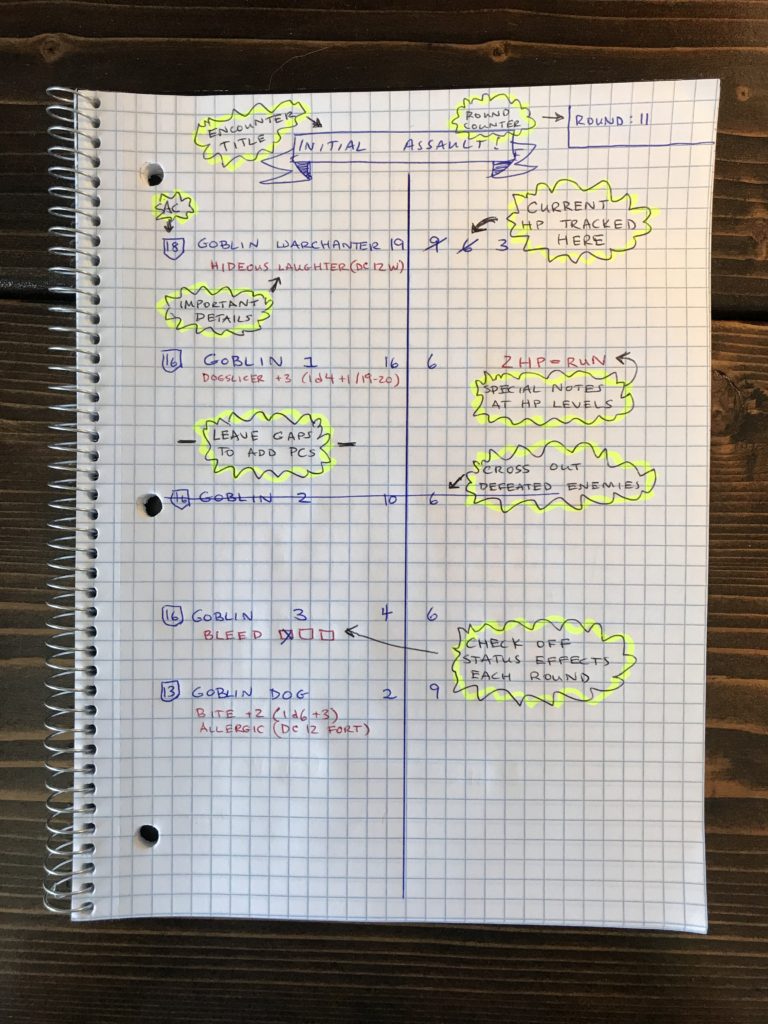 ENCOUNTER
TITLE
INITIAL ASSAULT!
ROUND
COUNTER
ROUND: II
AC
18 GOBLIN WARCHANTER 19 9 6 3
HIDEOUS LAUGHTER (DC 12 W)
CURRENT
HP TRACKED
HERE
IMPORTANT
DETAILS
16 GOBLIN 1 16 6 2HP = RUN
DOGSLICER +3 (1d4+1/19-20)
SPECIAL NOTES
AT HP LEVELS
LEAVE GAPS
TO ADD PCS
CROSS OUT
DEFEATED ENEMIES
16 GOBLIN 2 10 6
16 GOBLIN 3 4 6
BLEED
CHECK OFF
STATUS EFFECTS
EACH ROUND
13 GOBLIN DOG 2 9
BITE +2 (1d6+3)
ALLERGIC (DC 12 FORT)